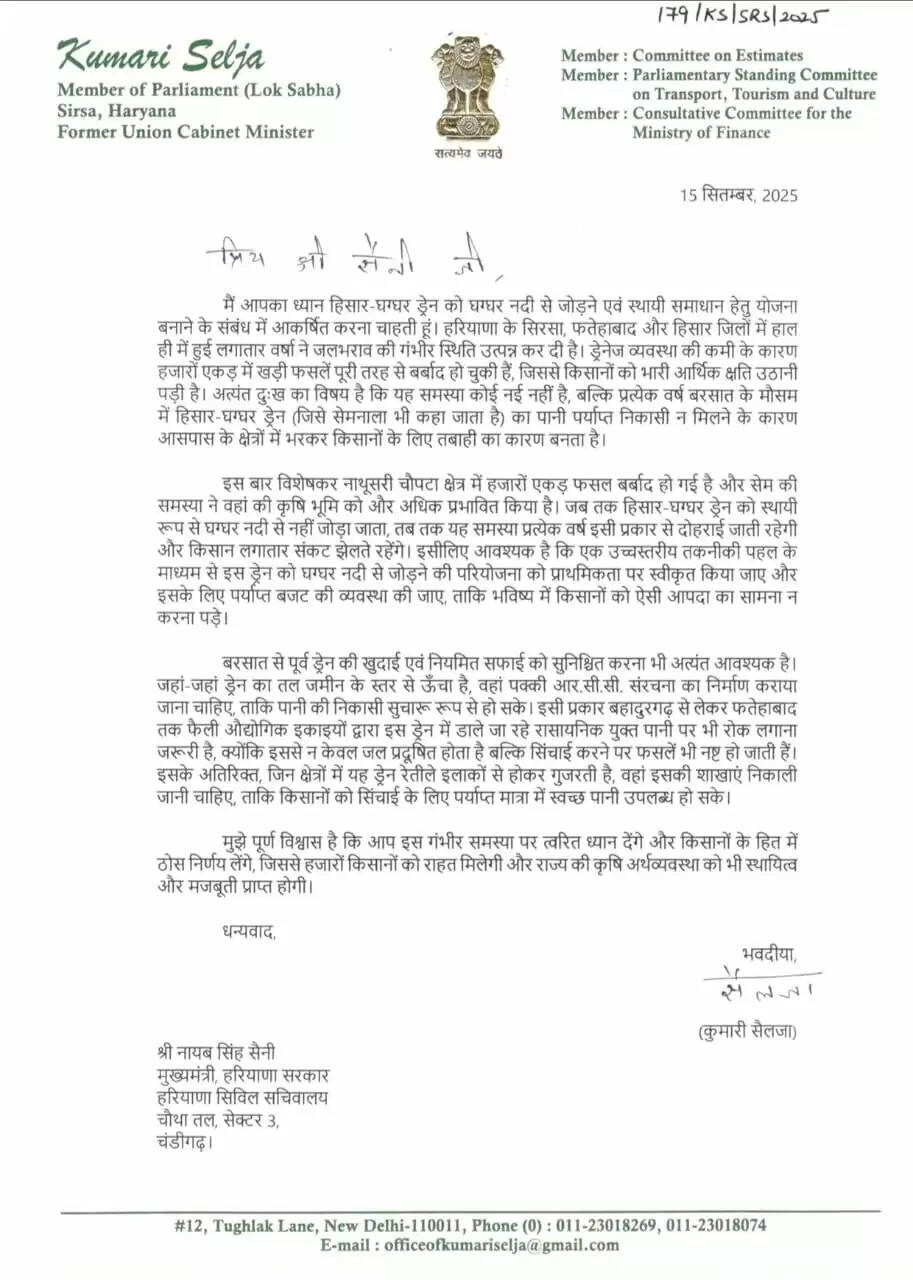 179/KS/SRS/2025
Kumari Selja
Member of Parliament (Lok Sabha)
Sirsa, Haryana
Former Union Cabinet Minister
सत्यमेव जयते
Member : Committee on Estimates
Member : Parliamentary Standing Committee
on Transport, Tourism and Culture
Member : Consultative Committee for the
Ministry of Finance
15 सितम्बर, 2025
प्रिय श्री सैनी जी,
मैं आपका ध्यान हिसार-घग्घर ड्रेन को घग्घर नदी से जोड़ने एवं स्थायी समाधान हेतु योजना
बनाने के संबंध में आकर्षित करना चाहती हूं। हरियाणा के सिरसा, फतेहाबाद और हिसार जिलों में हाल
ही में हुई लगातार वर्षा ने जलभराव की गंभीर स्थिति उत्पन्न कर दी है। ड्रेनेज व्यवस्था की कमी के कारण
हजारों एकड़ में खड़ी फसलें पूरी तरह से बर्बाद हो चुकी हैं, जिससे किसानों को भारी आर्थिक क्षति उठानी
पड़ी है। अत्यंत दुःख का विषय है कि यह समस्या कोई नई नहीं है, बल्कि प्रत्येक वर्ष बरसात के मौसम
में हिसार-घग्घर ड्रेन (जिसे सेमनाला भी कहा जाता है) का पानी पर्याप्त निकासी न मिलने के कारण
आसपास के क्षेत्रों में भरकर किसानों के लिए तबाही का कारण बनता है।
इस बार विशेषकर नाथूसरी चौपटा क्षेत्र में हजारों एकड़ फसल बर्बाद हो गई है और सेम की
समस्या ने वहां की कृषि भूमि को और अधिक प्रभावित किया है। जब तक हिसार-घग्घर ड्रेन को स्थायी
रूप से घग्घर नदी से नहीं जोड़ा जाता, तब तक यह समस्या प्रत्येक वर्ष इसी प्रकार से दोहराई जाती रहेगी
और किसान लगातार संकट झेलते रहेंगे। इसीलिए आवश्यक है कि एक उच्चस्तरीय तकनीकी पहल के
माध्यम से इस ड्रेन को घग्घर नदी से जोड़ने की परियोजना को प्राथमिकता पर स्वीकृत किया जाए और
इसके लिए पर्याप्त बजट की व्यवस्था की जाए, ताकि भविष्य में किसानों को ऐसी आपदा का सामना न
करना पड़े।
बरसात से पूर्व ड्रेन की खुदाई एवं नियमित सफाई को सुनिश्चित करना भी अत्यंत आवश्यक है।
जहां-जहां ड्रेन का तल जमीन के स्तर से ऊँचा है, वहां पक्की आर.सी.सी. संरचना का निर्माण कराया
जाना चाहिए, ताकि पानी की निकासी सुचारू रूप से हो सके। इसी प्रकार बहादुरगढ़ से लेकर फतेहाबाद
तक फैली औद्योगिक इकाइयों द्वारा इस ड्रेन में डाले जा रहे रासायनिक युक्त पानी पर भी रोक लगाना
जरूरी है, क्योंकि इससे न केवल जल प्रदूषित होता है बल्कि सिंचाई करने पर फसलें भी नष्ट हो जाती हैं।
इसके अतिरिक्त, जिन क्षेत्रों में यह ड्रेन रेतीले इलाकों से होकर गुजरती है, वहां इसकी शाखाएं निकाली
जानी चाहिए, ताकि किसानों को सिंचाई के लिए पर्याप्त मात्रा में स्वच्छ पानी उपलब्ध हो सके।
मुझे पूर्ण विश्वास है कि आप इस गंभीर समस्या पर त्वरित ध्यान देंगे और किसानों के हित में
ठोस निर्णय लेंगे, जिससे हजारों किसानों को राहत मिलेगी और राज्य की कृषि अर्थव्यवस्था को भी स्थायित्व
और मजबूती प्राप्त होगी।
धन्यवाद,
भवदीया,
सैलजा
(कुमारी सैलजा)
श्री नायब सिंह सैनी
मुख्यमंत्री, हरियाणा सरकार
हरियाणा सिविल सचिवालय
चौथा तल, सेक्टर 3,
चंडीगढ़।
#12, Tughlak Lane, New Delhi-110011, Phone (0) : 011-23018269, 011-23018074
E-mail : officeofkumariselja@gmail.com